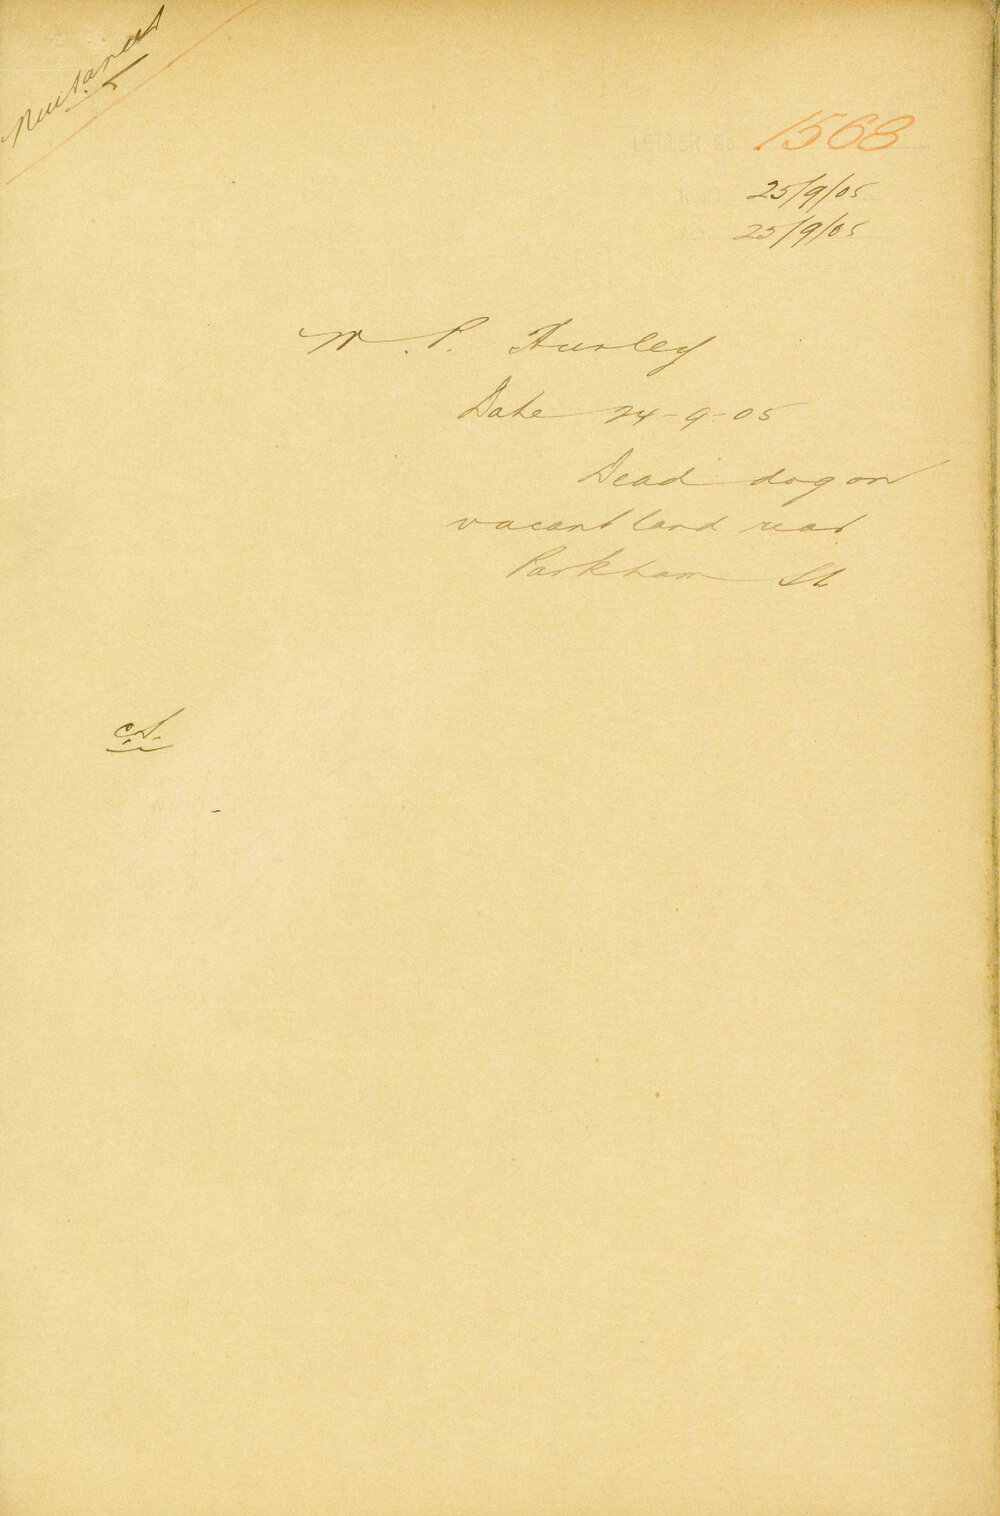 Nuisances
LETTER No. 1568
25/9/05
25/9/05
W. P. Hurley
Date 24-9-05
Dead dog on
vacant land rear
Parkham St